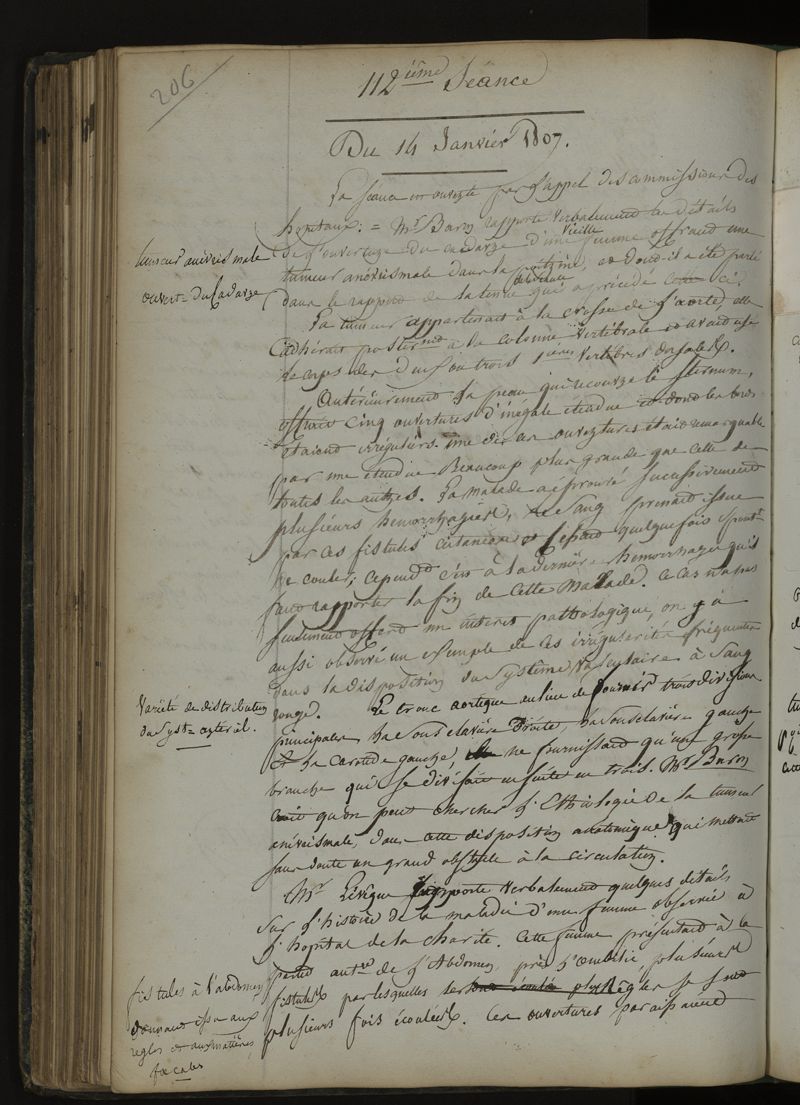 206
112ième Séance
Du 14 Janvier 1807.
La séance est ouverte par l'appel des commissions des
hopitaux. = Mr Baron rapporte verbalement les détails
de l'ouverture du cadavre d'une vieille femme offrant une
tumeur anévrismale dans la poitrine, et dont il a été parlé
tumeur anévrismale
ouvert- du Cadavre
dans le rapport de la qui a précédé celle ci.
La tumeur appartenait à la crosse de l'aorte, elle
adhérait poster à la colonne vertébrale et avait usé
le corps des deux ou trois 1ères vertèbres dorsales.
Antérieurement la peau qui recouvre le sternum,
offrait cinq ouvertures d'inégale étendue et dont les bords
étaient irréguliers. une de ces ouvertures était remarquable
par une étendue beaucoup plus grande que celle de
toutes les autres. La malade a éprouvé successivement
plusieurs hémorrhagies, le sang prenait issue
par ces fistules cutanées et quelquefois spont
de couler; cepend c'est à la dernière hémorrhagie qu'il
faut rapporter la fin de cette Malade. Ce cas n'a pas
seulement offert un intérêt pathologique, on y a
aussi observé un exemple de ces irrégularités fréquentes
dans la disposition du système vasculaire à sang
rouge. Le tronc aortique au lieu de fournir trois divisions
Variété de distribution
du Syst= artériel.
principales, la sousclavière Droite, la sousclavière gauche
et la carotide gauche, ne fournissait qu'une grosse
branche qui se divisait ensuite en trois. Mr Baron
croit qu'on peut chercher l'Ethiologie de la tumeur
anévrismale, dans cette disposition anatomique qui mettait
sans doute un grand obstacle à la circulation.
Mr Lévêque rapporte verbalement quelques détails
sur l'histoire de la maladie d'une femme observée à
l'hopital de la charité. Cette femme présentait à la
partie antre de l'Abdomen, près l'ombilic plusieurs
fistules par lesquelles les règles se sont
plusieurs fois écoulées. Ces ouvertures paraissaient
fistules à l'abdomen
donnant issue aux
règles et aux matières
fœcales